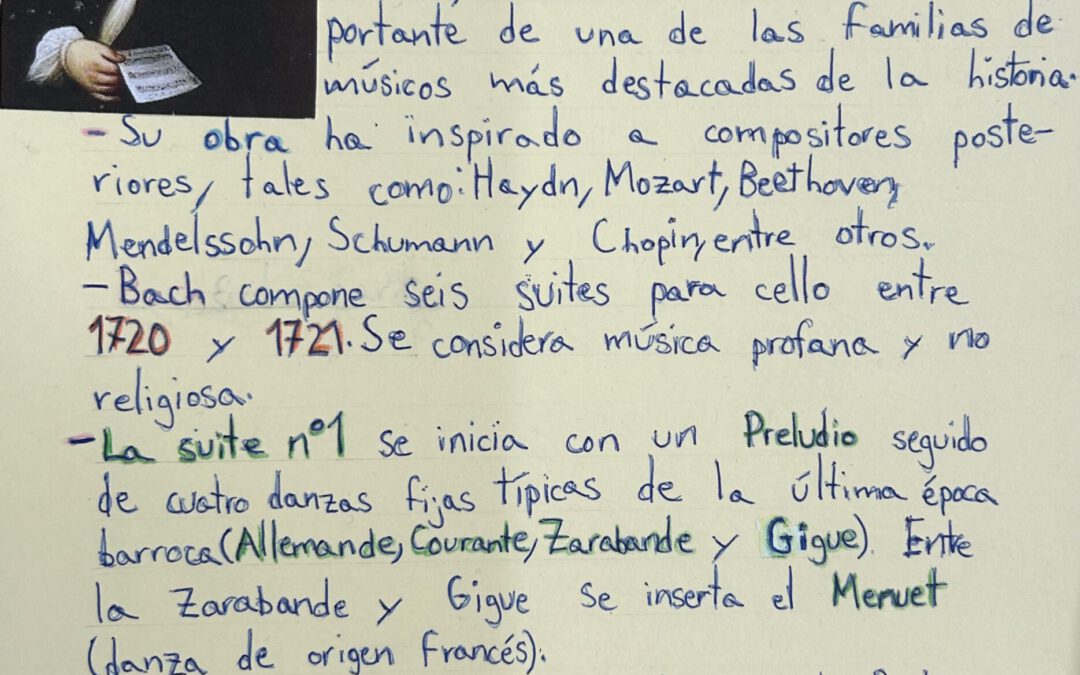 portante de una de las familias de
músicos más destacadas de la historia.
- Su obra ha inspirado a compositores poste-
riores, tales como: Haydn, Mozart, Beethoven,
Mendelssohn, Schumann y Chopin, entre otros.
- Bach compone seis suites para cello entre
1720 y 1721. Se considera música profana y no
religiosa.
- La suite nº1 se inicia con un Preludio seguido
de cuatro danzas fijas típicas de la última época
barroca (Allemande, Courante, Zarabande y Gigue). Entre
la Zarabande y Gigue se inserta el Menuet
(danza de origen francés).